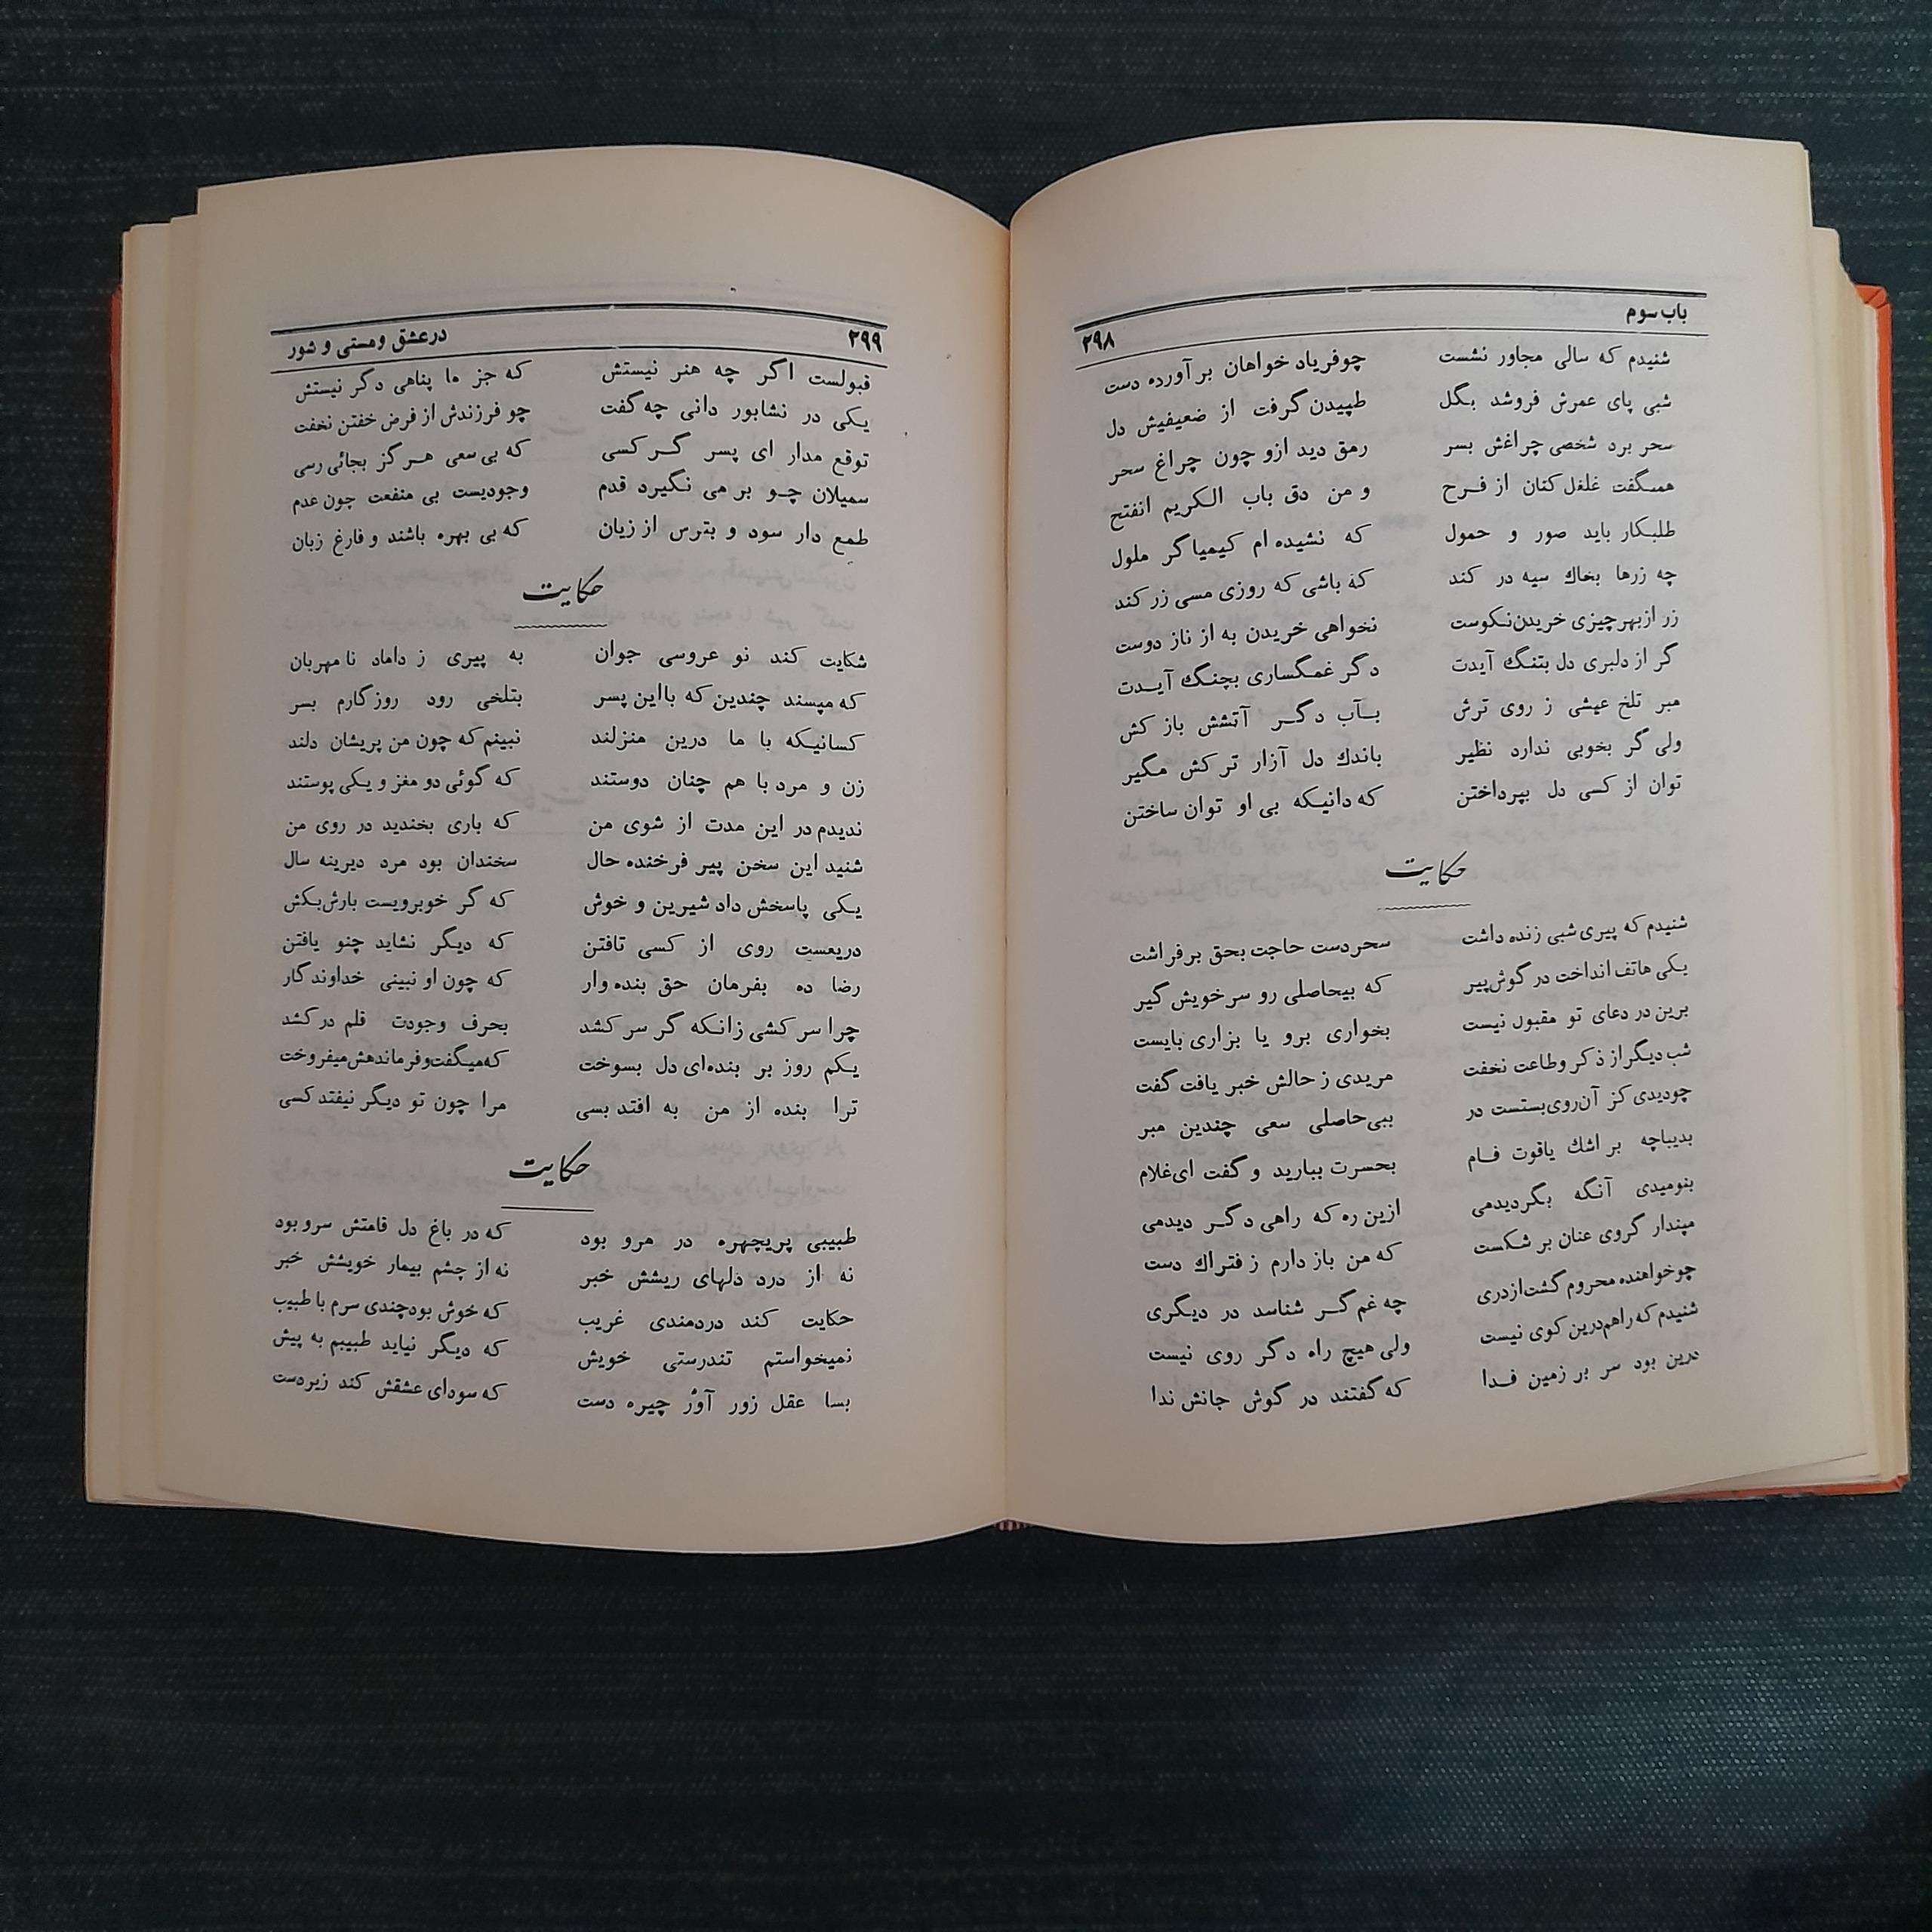 باب سوم ۲۹۸
شنیدم که سالی مجاور نشست چوفریاد خواهان برآورده دست
شبی پای عمرش فروشد بگل طپیدن گرفت از ضعیفیش دل
سحر برد شخصی چراغش بسر رمق دید ازو چون چراغ سحر
همیگفت غلغل کنان از فرح و من دق باب الکریم انفتح
طلبکار باید صور و حمول که نشیده ام کیمیاگر ملول
چه زرها بخاك سیه در کند که باشی که روزی مسی زر کند
زر ازبهر چیزی خریدن نکوست نخواهی خریدن به از ناز دوست
گر از دلبری دل بتنگ آیدت دگر غمگساری بچنگ آیدت
مبر تلخ عیشی ز روی ترش بآب دگر آتشش باز کش
ولی گر بخوبی ندارد نظیر باندك دل آزار ترکش مگیر
توان از کسی دل بپرداختن که دانیکه بی او توان ساختن
حکایت
شنیدم که پیری شبی زنده داشت سحردست حاجت بحق برفراشت
یکی هاتف انداخت در گوش پیر که بیحاصلی رو سرخویش گیر
برین در دعای تو مقبول نیست بخواری برو یا بزاری بایست
شب دیگر از ذکر وطاعت نخفت مریدی ز حالش خبر یافت گفت
چودیدی کز آن روی بستست در ببی حاصلی سعی چندین مبر
بدیباچه بر اشك یاقوت فام بحسرت ببارید و گفت ای غلام
بنومیدی آنگه بگردیدمی ازین ره که راهی دگر دیدمی
مپندار گروی عنان بر شکست که من باز دارم ز فتراك دست
چوخواهنده محروم گشت ازدری چه غم گر شناسد در دیگری
شنیدم که راهم درین کوی نیست ولی هیچ راه دگر روی نیست
درین بود سر بر زمین فدا که گفتند در گوش جانش ندا
۲۹۹ درعشق ومستی و شور
قبولست اگر چه هنر نیستش که جز ما پناهی دگر نیستش
یکی در نشابور دانی چه گفت چو فرزندش از فرض خفتن نخفت
توقع مدار ای پسر گر کسی که بی سعی هرگز بجائی رسی
سمیلان چو بر می نگیرد قدم وجودیست بی منفعت چون عدم
طمع دار سود و بترس از زیان که بی بهره باشند و فارغ زبان
حکایت
شکایت کند نو عروسی جوان به پیری ز داماد نامهربان
که مپسند چندین که بااین پسر بتلخی رود روزگارم بسر
کسانیکه با ما درین منزلند نبینم که چون من پریشان دلند
زن و مرد با هم چنان دوستند که گوئی دو مغز و یکی پوستند
ندیدم در این مدت از شوی من که باری بخندید در روی من
شنید این سخن پیر فرخنده حال سخندان بود مرد دیرینه سال
یکی پاسخش داد شیرین و خوش که گر خوبرویست بارش بکش
دریعست روی از کسی تافتن که دیگر نشاید چنو یافتن
رضا ده بفرمان حق بنده وار که چون او نبینی خداوندگار
چرا سر کشی زانکه گر سر کشد بحرف وجودت قلم درکشد
یکم روز بر بنده‌ای دل بسوخت که میگفت و فرماندهش میفروخت
ترا بنده از من به افتد بسی مرا چون تو دیگر نیفتد کسی
حکایت
طبیبی پریچهره در مرو بود که در باغ دل قامتش سرو بود
نه از درد دلهای ریشش خبر نه از چشم بیمار خویشش خبر
حکایت کند دردمندی غریب که خوش بودچندی سرم با طبیب
نمیخواستم تندرستی خویش که دیگر نیاید طبیبم به پیش
بسا عقل زور آوُر چیره دست که سودای عشقش کند زیردست